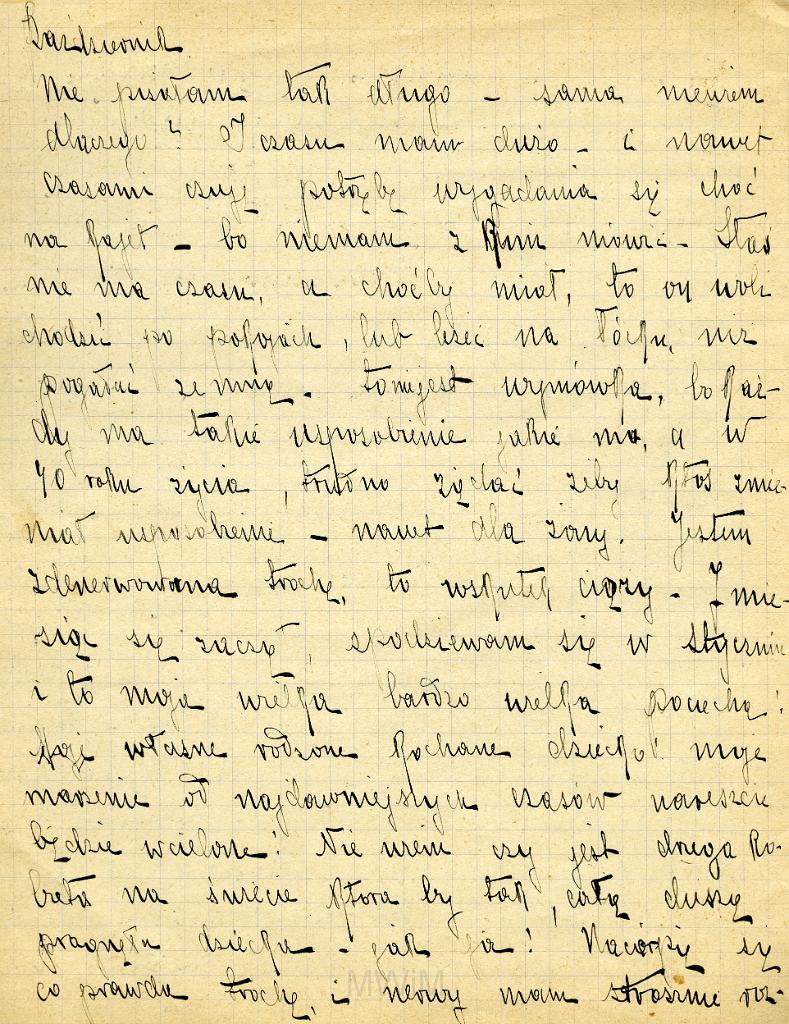 Październik
Nie pisałam tak długo – sama niewiem
dlaczego? I czasu mam dużo – i nawet
czasami czuję potrzebę wygadania się choć
na papier – bo niemam z kim mówić – Staś
nie ma czasu, a choćby miał, to on woli
chodzić po pokojach, lub leżeć na łóżku, niż
pogadać ze mną. to wymówka, bo każ-
dy ma takie usposobienie jakie ma, a w
40 roku życia, trudno żądać żeby ktoś zmie-
niał usposobienie – nawet dla żony. Jestem
zdenerwowana trochę, to wskutek ciąży – 7 mie-
siąc się zaczął, spodziewam się w styczniu
i to moja wielka bardzo wielka pociecha!
Moje własne rodzone kochane dziecko! moje
marzenie od najdawniejszych czasów nareszcie
będzie wcielone! Nie wiem czy jest druga ko-
bieta na świecie która by tak całą duszą
pragnęła dziecka – jak ja! Nacierpię się
co prawda trochę, i nerwy mam strasznie roz-
MWiM